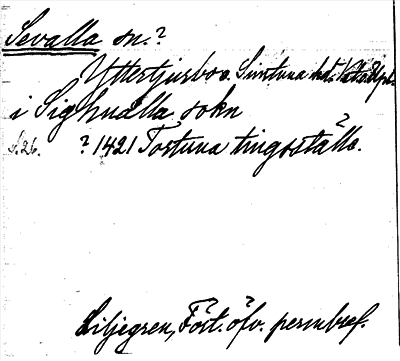 Sevalla sn.?
Yttertjusbo o. Simtuna hd.
i Sighualla sokn
S. 26. ? 1421 Tortuna tingsställe. ?
Liljegren, Fört. öfv. permbref.